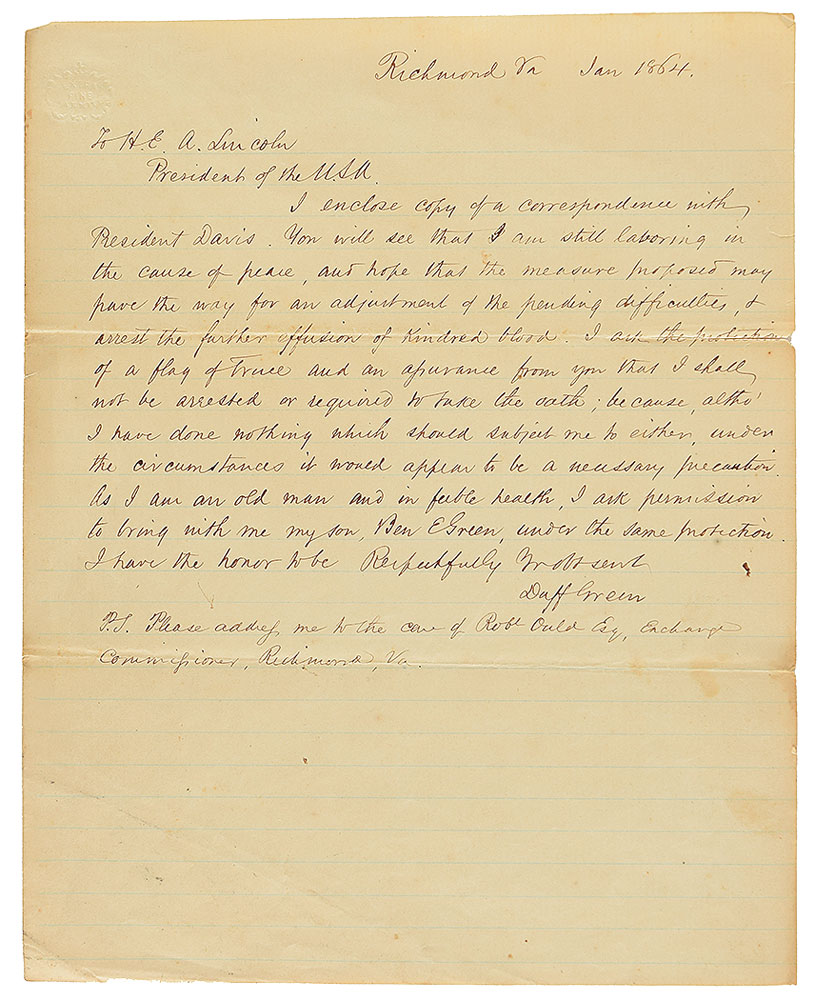 Richmond Va Jan 1864.
To H.E. A. Lincoln
President of the U.S.A.
I enclose copy of a correspondence with
President Davis. You will see that I am still laboring in
the cause of peace, and hope that the measure proposed may
pave the way for an adjustment of the pending difficulties, &
arrest the further effusion of kindred blood. I ask the protection
of a flag of truce and an assurance from you that I shall
not be arrested or required to take the oath; because, altho'
I have done nothing which should subject me to either, under
the circumstances it would appear to be a necessary precaution.
As I am an old man and in feeble health, I ask permission
to bring with me my son, Ben E Green, under the same protection.
I have the honor to be Respectfully Yr obt servt
Duff Green
P.S. Please address me to the care of Robt Ould Esq, Exchange
Commissioner, Richmond, Va.